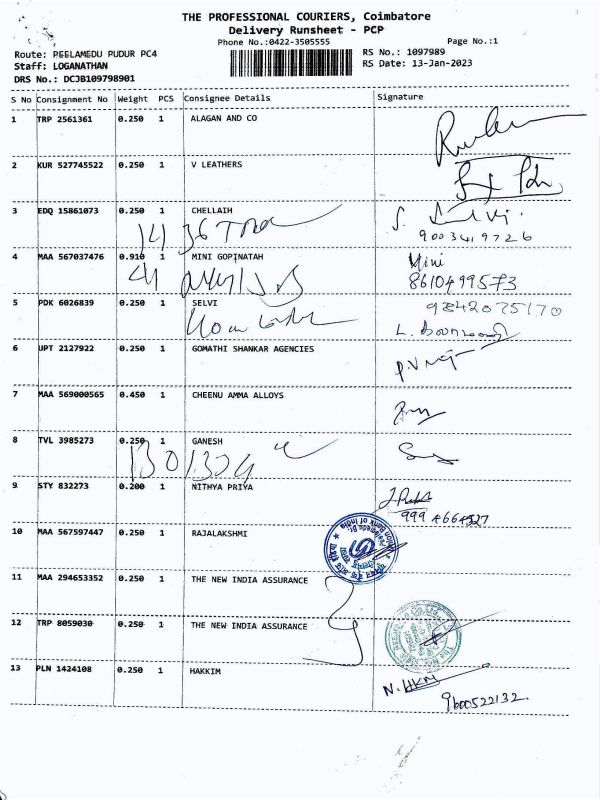 THE PROFESSIONAL COURIERS, Coimbatore
Delivery Runsheet - PCP
Phone No.:0422-3505555
Page No.:1
Route: PEELAMEDU PUDUR PC4
RS No.: 1097989
Staff: LOGANATHAN
RS Date: 13-Jan-2023
DRS No.: DCJB109798901
S No Consignment No Weight PCS Consignee Details Signature
1 TRP 2561361 0.250 1 ALAGAN AND CO
2 KUR 527745522 0.250 1 V LEATHERS
3 EDQ 15861073 0.250 1 CHELLAIH
9003419726
4 MAA 567037476 0.910 1 MINI GOPINATAH Mini
8610499573
5 PDK 6026839 0.250 1 SELVI 9842075170
6 UPT 2127922 0.250 1 GOMATHI SHANKAR AGENCIES
7 MAA 569000565 0.450 1 CHEENU AMMA ALLOYS
8 TVL 3985273 0.250 1 GANESH
9 STY 832273 0.200 1 NITHYA PRIYA
10 MAA 567597447 0.250 1 RAJALAKSHMI
11 MAA 294653352 0.250 1 THE NEW INDIA ASSURANCE
12 TRP 8059030 0.250 1 THE NEW INDIA ASSURANCE
13 PLN 1424108 0.250 1 HAKKIM
9600522132